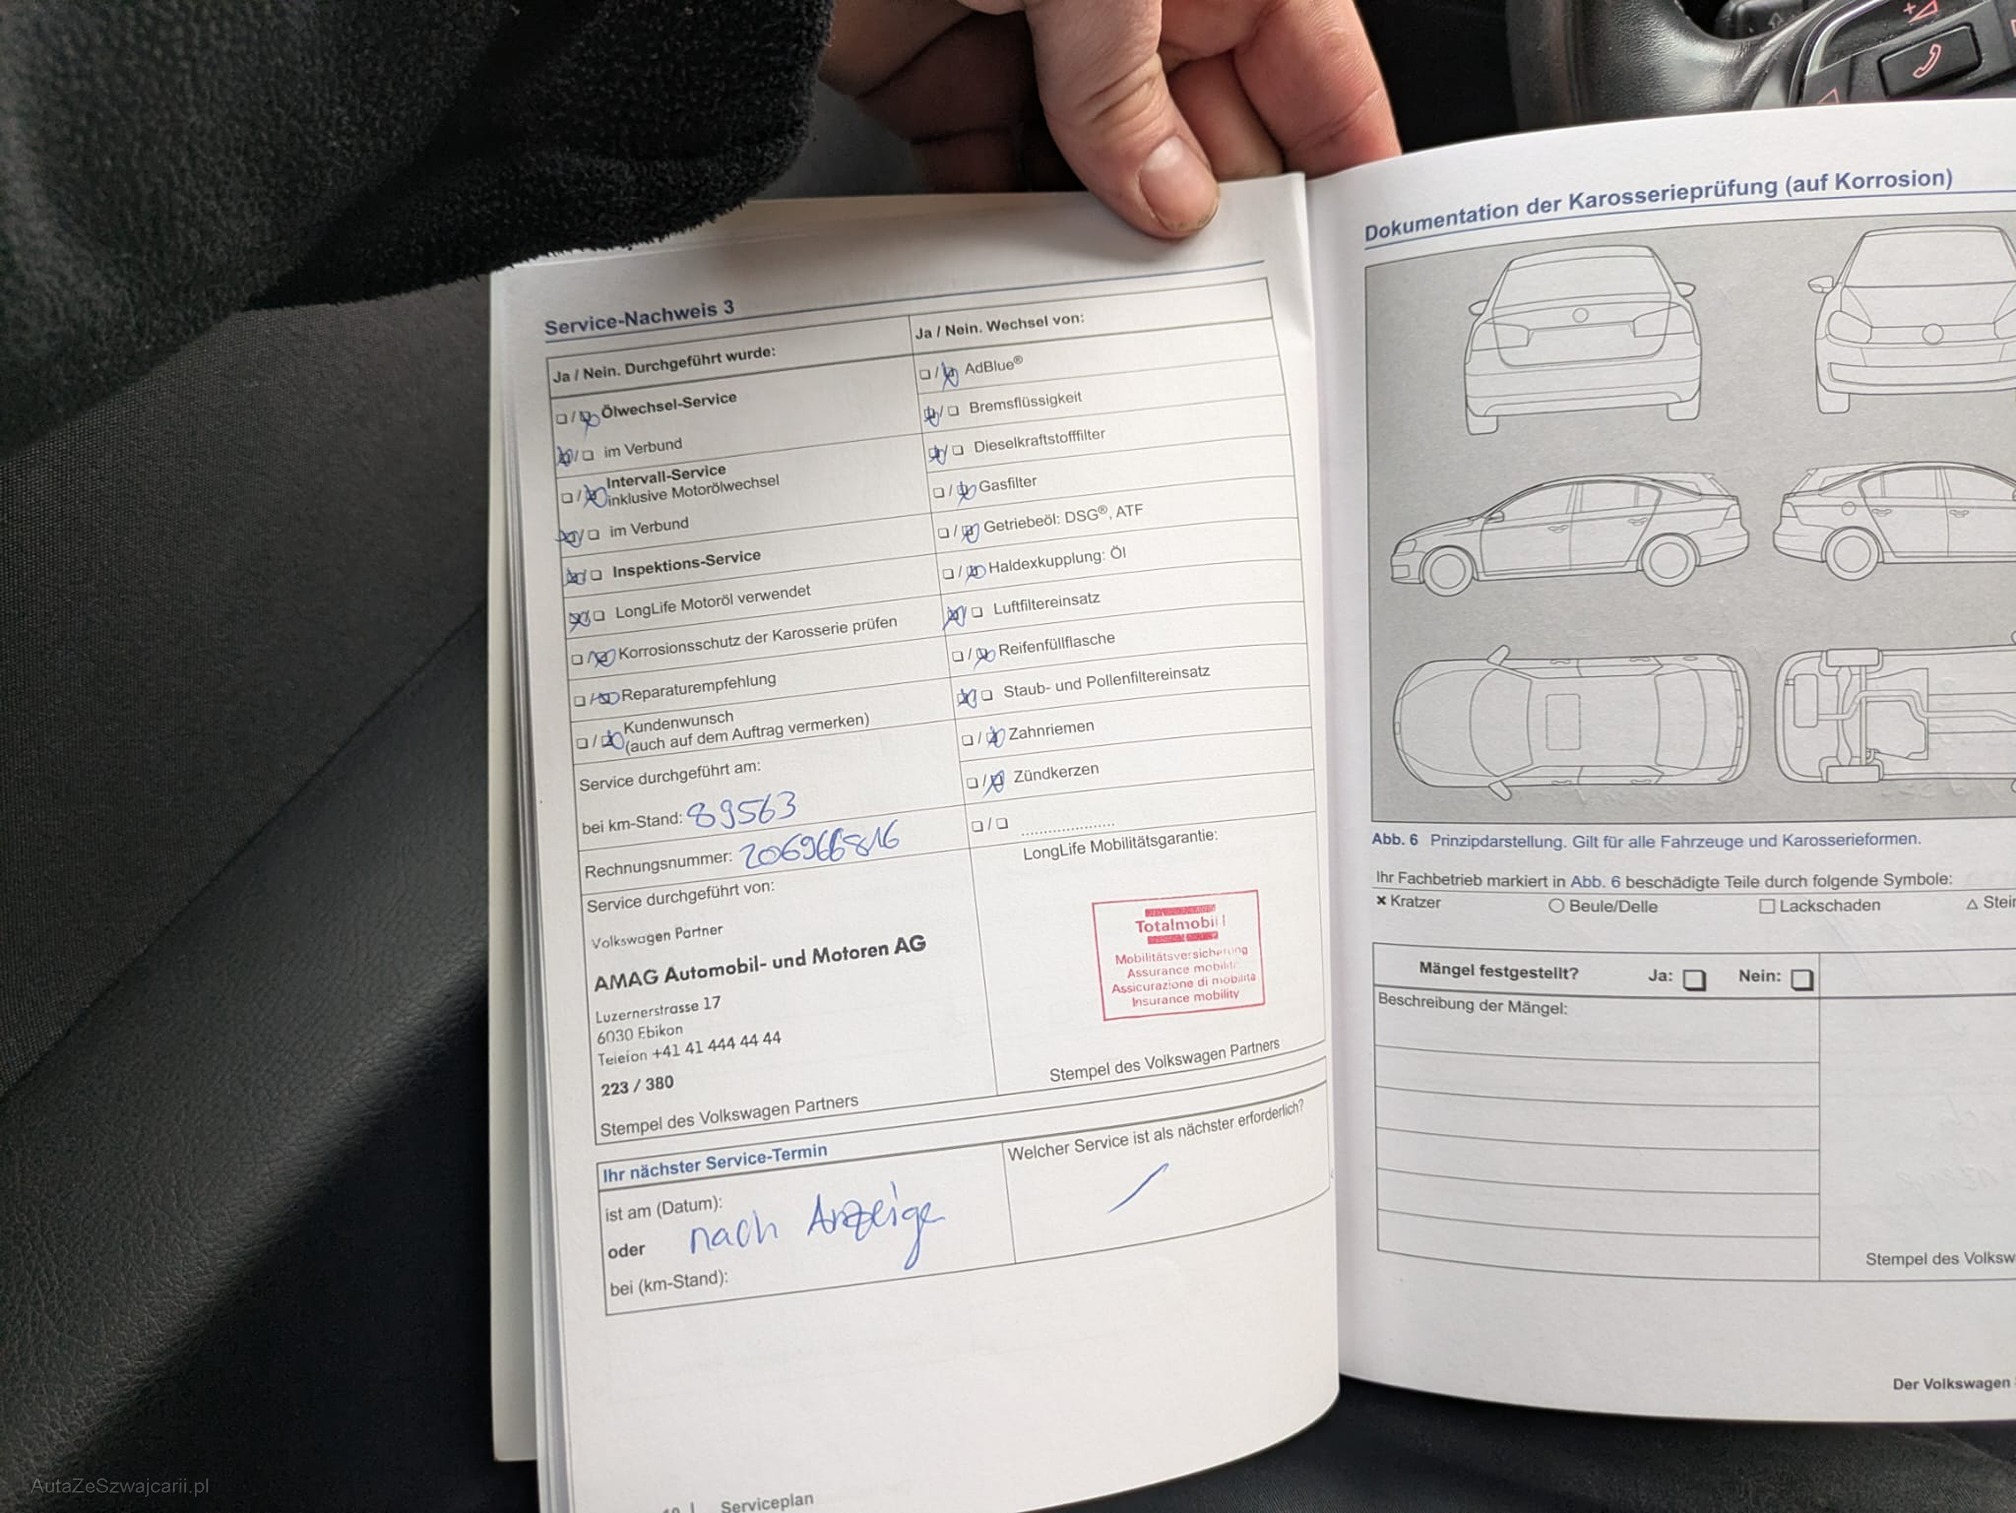 Service-Nachweis 3
Ja / Nein. Durchgeführt wurde:
Ölwechsel-Service
im Verbund
Intervall-Service
inklusive Motorölwechsel
im Verbund
Inspektions-Service
LongLife Motoröl verwendet
Korrosionsschutz der Karosserie prüfen
Reparaturempfehlung
Kundenwunsch
(auch auf dem Auftrag vermerken)
Service durchgeführt am:
bei km-Stand: 89563
Rechnungsnummer: 206966816
Service durchgeführt von:
Volkswagen Partner
AMAG Automobil- und Motoren AG
Luzernerstrasse 17
6030 Ebikon
Telefon +41 41 444 44 44
223 / 380
Stempel des Volkswagen Partners
Ja / Nein. Wechsel von:
AdBlue®
Bremsflüssigkeit
Dieselkraftstofffilter
Gasfilter
Getriebeöl: DSG®, ATF
Haldexkupplung: Öl
Luftfiltereinsatz
Reifenfüllflasche
Staub- und Pollenfiltereinsatz
Zahnriemen
Zündkerzen
LongLife Mobilitätsgarantie:
Totalmobil!
Mobilitätsversicherung
Assurance mobilité
Assicurazione di mobilità
Insurance mobility
Stempel des Volkswagen Partners
Ihr nächster Service-Termin
ist am (Datum):
oder nach Anzeige
bei (km-Stand):
Welcher Service ist als nächster erforderlich?
Serviceplan
Dokumentation der Karosserieprüfung (auf Korrosion)
Abb. 6 Prinzipdarstellung. Gilt für alle Fahrzeuge und Karosserieformen.
Ihr Fachbetrieb markiert in Abb. 6 beschädigte Teile durch folgende Symbole:
× Kratzer ○ Beule/Delle □ Lackschaden △ Stein
Mängel festgestellt? Ja: Nein:
Beschreibung der Mängel:
Stempel des Volksw
Der Volkswagen
AutaZeSzwajcarii.pl